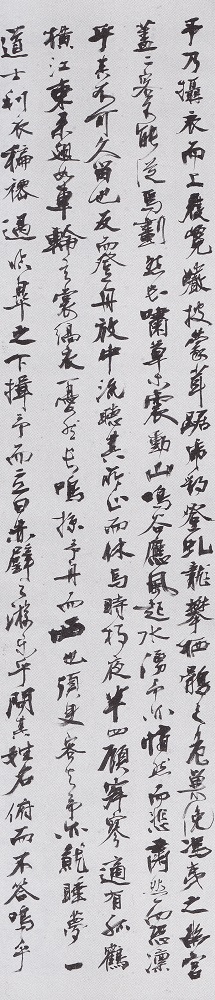 予乃攝衣而上履巉巖披蒙茸踞虎豹登虬龍攀栖鶻之危巢俯馮夷之幽宮
蓋二客不能從焉劃然長嘯草木震動山鳴谷應風起水湧予亦悄然而悲肅然而恐凜
乎其不可久留也反而登舟放中流聽其所止而休焉時將夜半四顧寂寥適有孤鶴
橫江東來翅如車輪玄裳縞衣戛然長鳴掠予舟而西也須臾客去予亦就睡夢一
道士羽衣翩僊過臨皋之下揖予而言曰赤壁之遊樂乎問其姓名俯而不答嗚乎